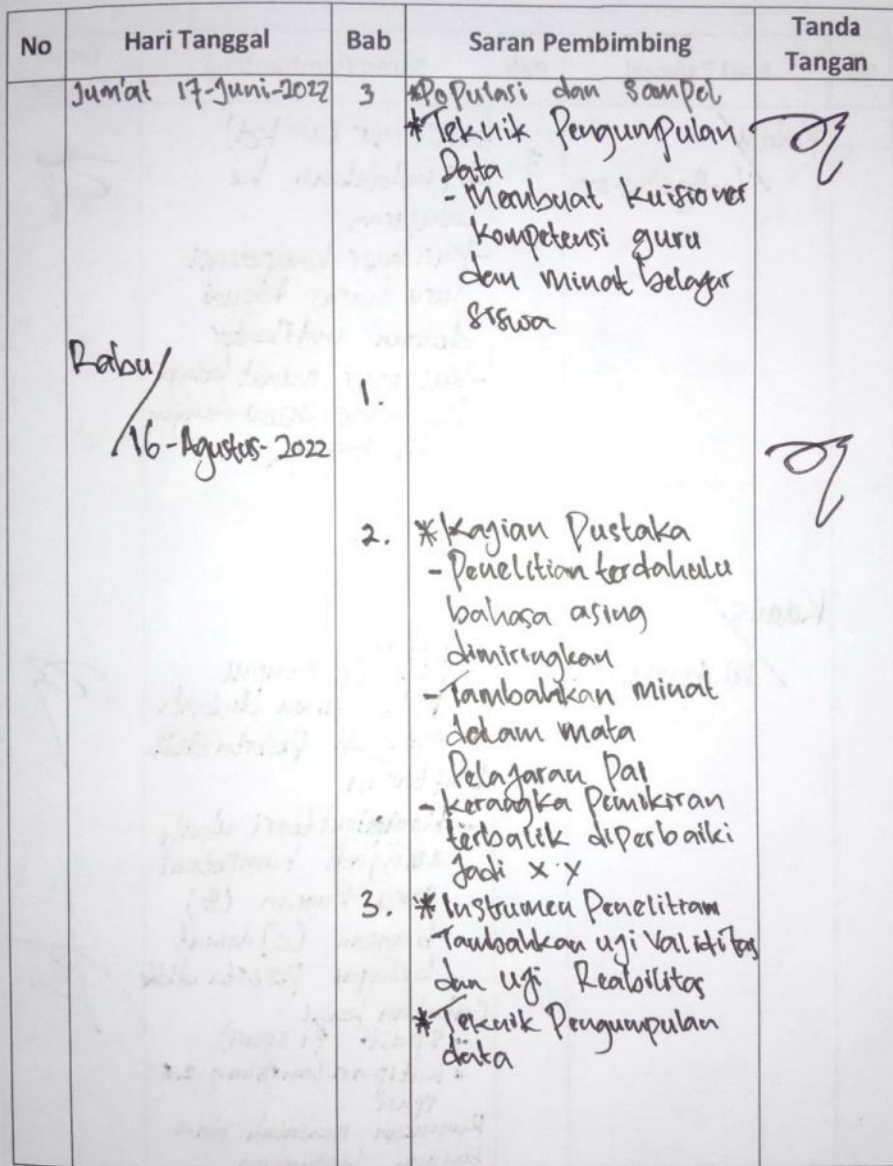 No Hari Tanggal Bab Saran Pembimbing Tanda Tangan
Jum'at 17-Juni-2022 3 *Populasi dan Sampel
*Teknik Pengumpulan
Data
- Membuat Kuisioner
kompetensi guru
dan minat belajar
siswa
Rabu/
1.
16-Agustus-2022
2. *Kajian Pustaka
- Penelitian terdahulu
bahasa asing
dimiringkan
- Tambahkan minat
dalam mata
Pelajaran PAI
- kerangka Pemikiran
terbalik diperbaiki
Jadi x y
3. *Instrumen Penelitian
Tambahkan uji Validitas
dan uji Reabilitas
*Teknik Pengumpulan
data